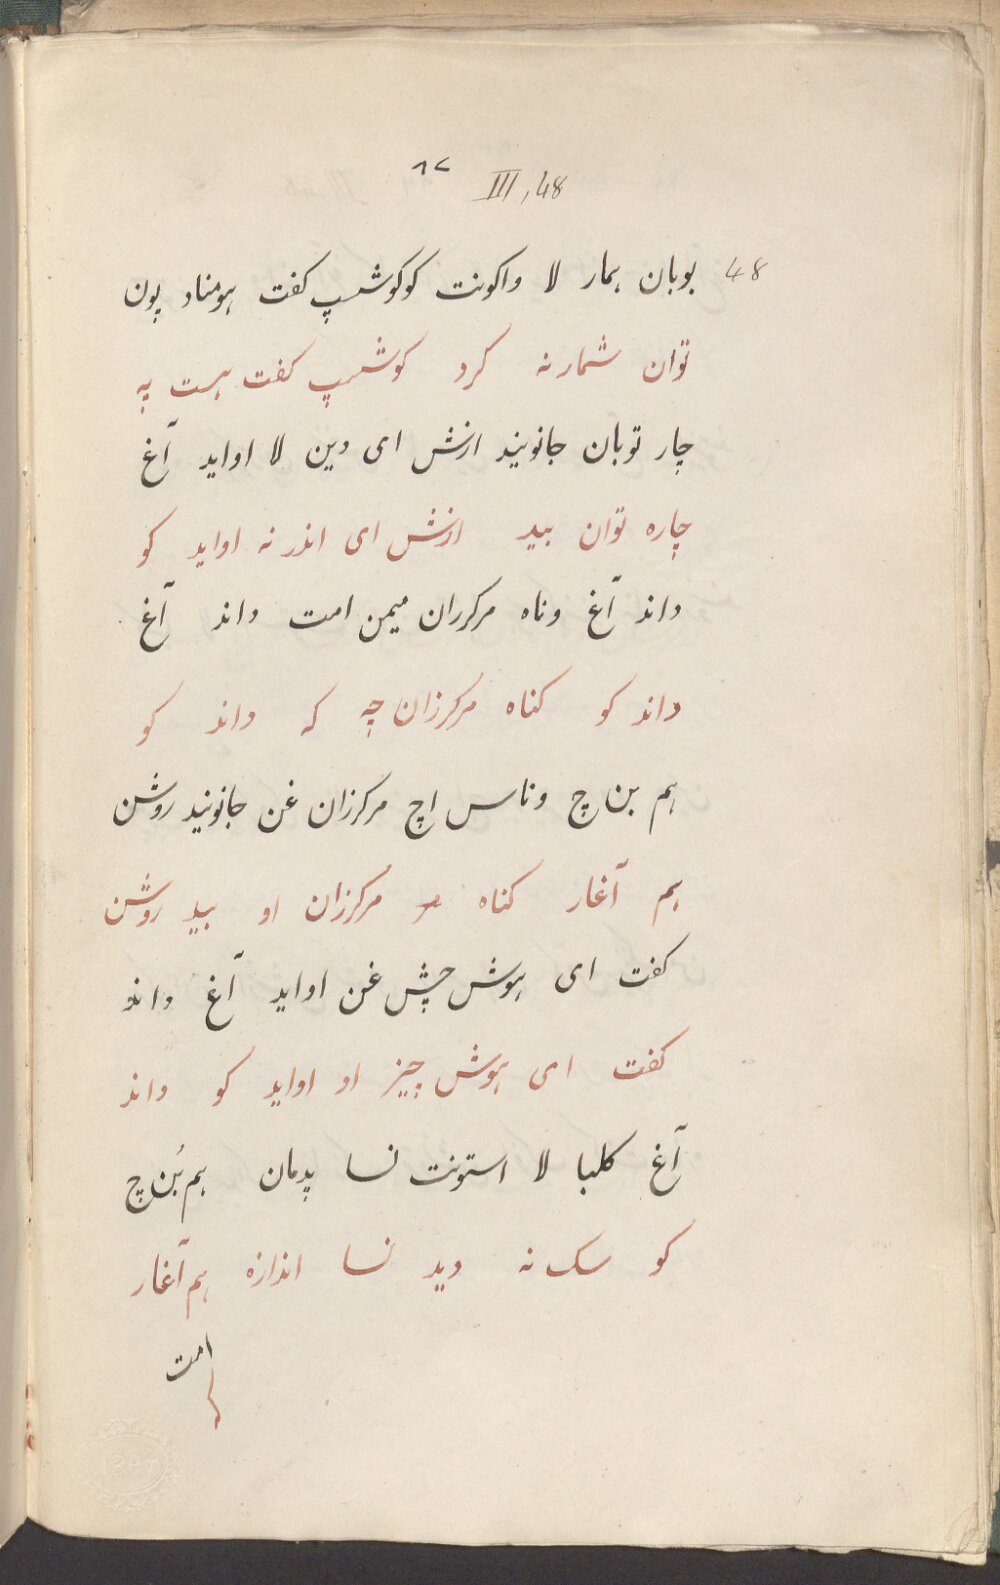 ۸۷
III, 48
48 بوبان بمار لا واکونت کوکوشسپ کفت هومناد پون
توان شمار نه کرد کوشسپ کفت هست په
چار توبان جانویند ازش ای دین لا اواید آغ
چاره توان بید ازش ای اندر نه اواید کو
داند آغ وناه مرکرران میمن امت داند آغ
داند کو کناه مرکرزان چه که داند کو
هم بن چ وناس اچ مرکرزان غن جانویند روشن
هم آغار کناه مرکرزان او بید روشن
کفت ای هوش چش غن اواید آغ داند
کفت ای هوش چیز او اواید کو داند
آغ کلبا لا استونت نسا پدمان هم بُن چ
کو سک نه دید نسا اندازه هم آغار
امت